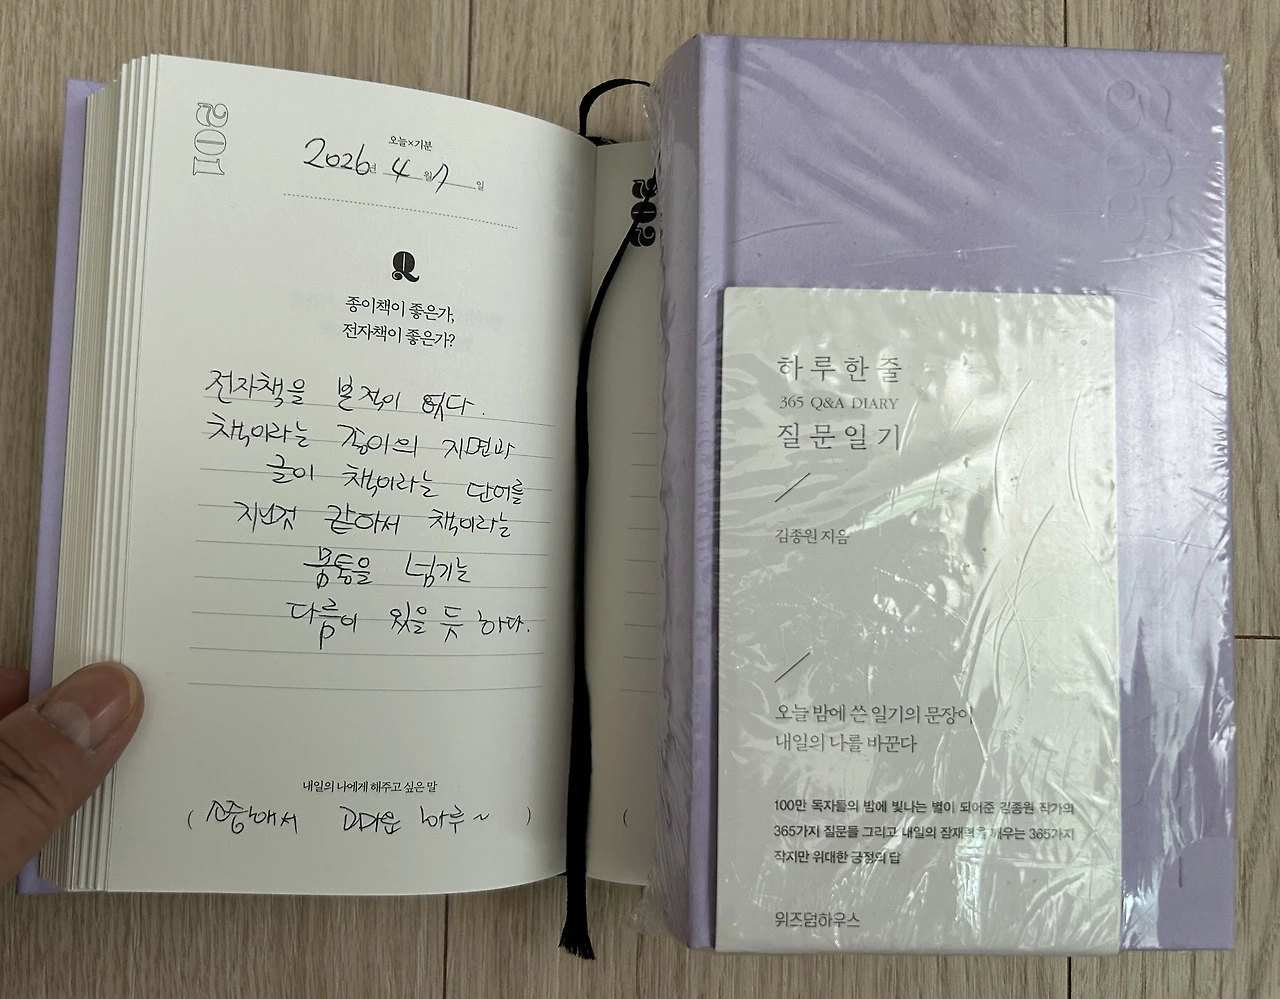 201
오늘×기분
2026년 4월 7일
Q
종이책이 좋은가,
전자책이 좋은가?
전자책을 본적이 없다.
책이라는 종이의 지면과
글이 책이라는 단어를
지닌것 같아서 책이라는
몸통을 넘기는
다름이 있을 듯 하다.
내일의 나에게 해주고 싶은 말
( 소중해서 고마운 하루~ )
202
(
365
하루한줄
365 Q&A DIARY
질문일기
김종원 지음
오늘 밤에 쓴 일기의 문장이
내일의 나를 바꾼다
100만 독자들의 밤에 빛나는 별이 되어준 김종원 작가의
365가지 질문들 그리고 내일의 잠재력을 깨우는 365가지
작지만 위대한 긍정의 답
위즈덤하우스